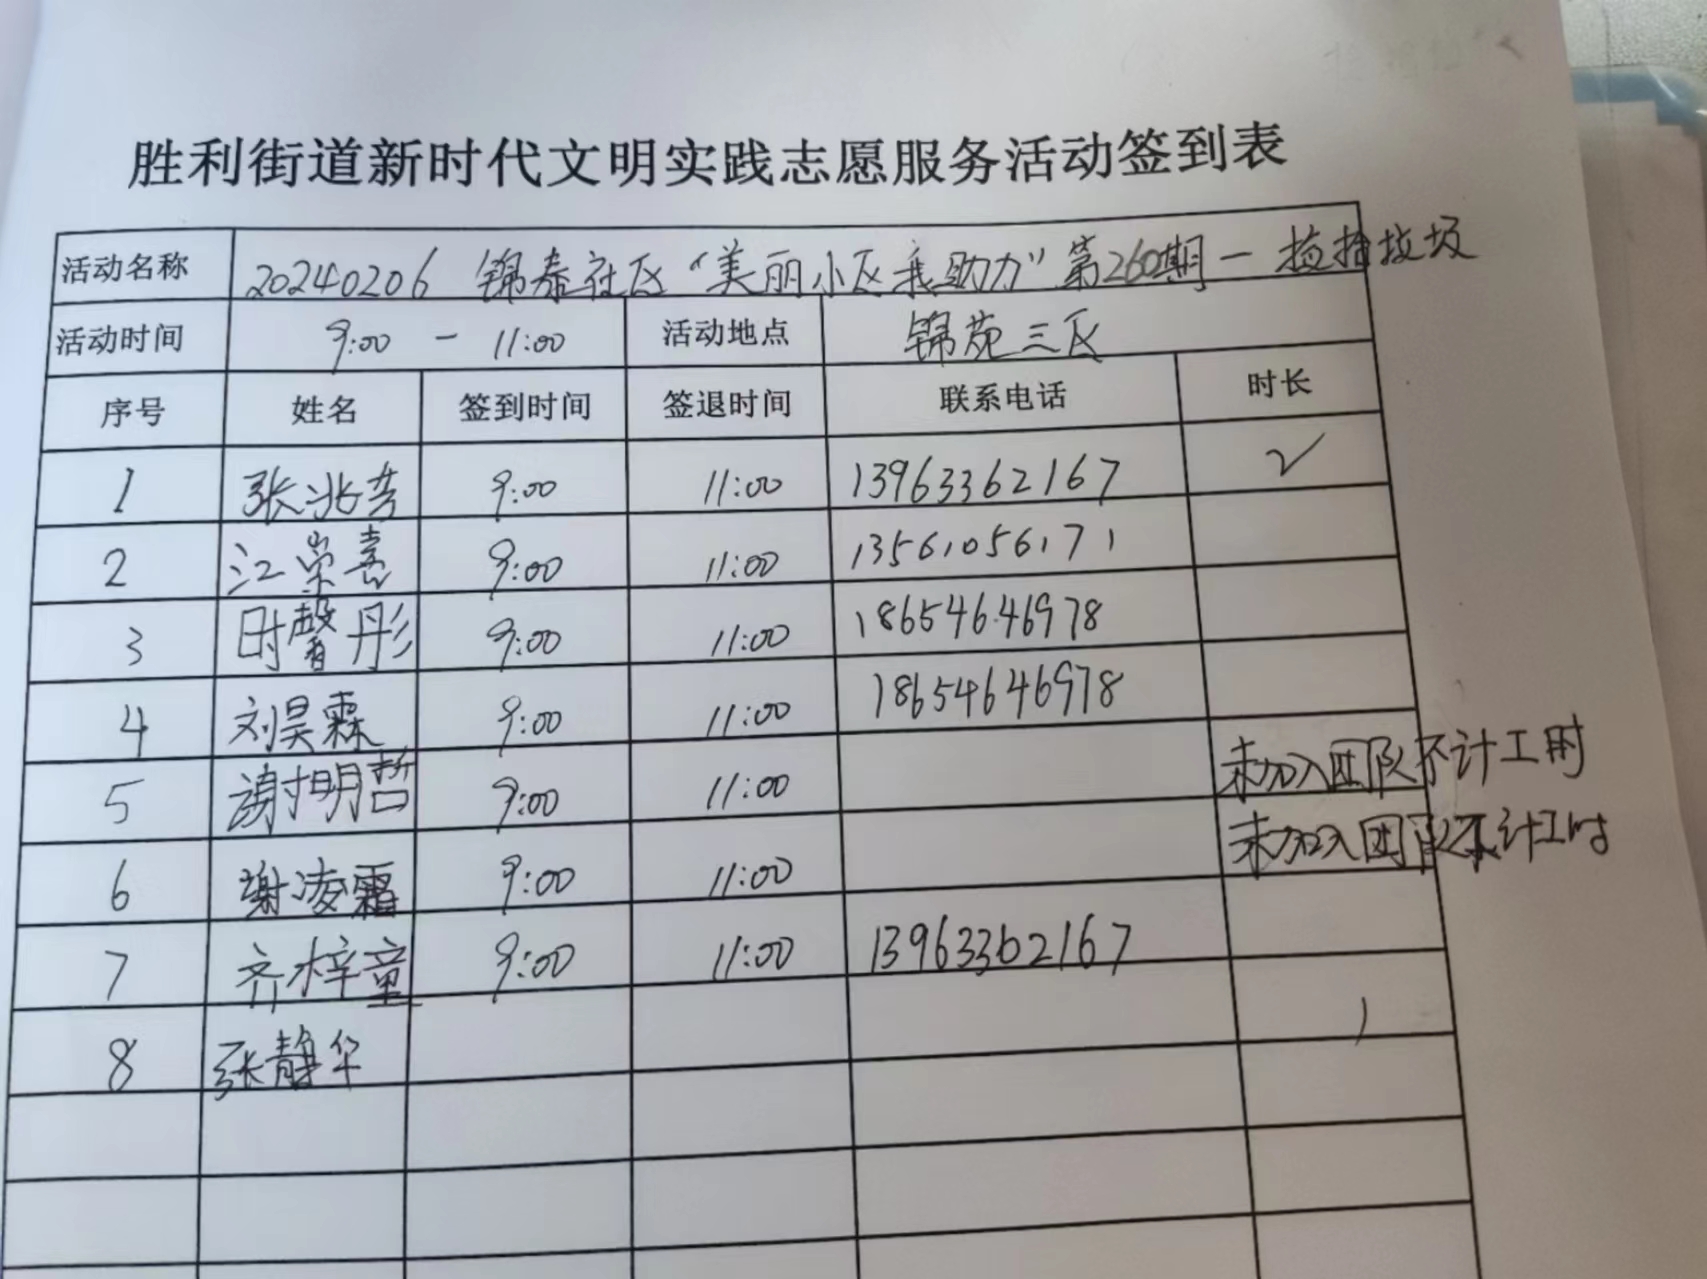 胜利街道新时代文明实践志愿服务活动签到表
活动名称 20240206 锦泰社区“美丽小区我助力”第260期一捡拾垃圾
活动时间 9:00 - 11:00 活动地点 锦苑三区
序号 姓名 签到时间 签退时间 联系电话 时长
1 张兆芳 9:00 11:00 13963362167 2
2 江崇喜 9:00 11:00 13561056171
3 时馨彤 9:00 11:00 18654646978
4 刘昊霖 9:00 11:00 18654646978
5 谢明哲 9:00 11:00 未加入团队不计工时
6 谢凌霜 9:00 11:00 未加入团队不计工时
7 齐梓童 9:00 11:00 13963362167
8 张静华